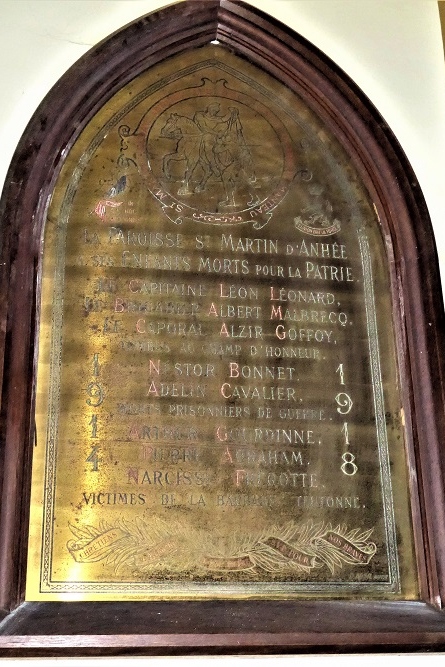 LA PAROISSE ST MARTIN D'ANHÉE
A SES ENFANTS MORTS POUR LA PATRIE.
LE CAPITAINE LÉON LÉONARD,
LE BRIGADIER ALBERT MALBRECQ,
LE CAPORAL ALZIR GOFFOY,
TOMBÉS AU CHAMP D'HONNEUR.
NESTOR BONNET,
ADELIN CAVALIER,
MORTS PRISONNIERS DE GUERRE.
ARTHUR GOURDINNE,
ABRAHAM,
NARCISSE FRÉROTTE
VICTIMES DE LA BARBARIE TEUTONNE.
1914
1918
CHRÉTIENS
POUR
NOS BRAVES